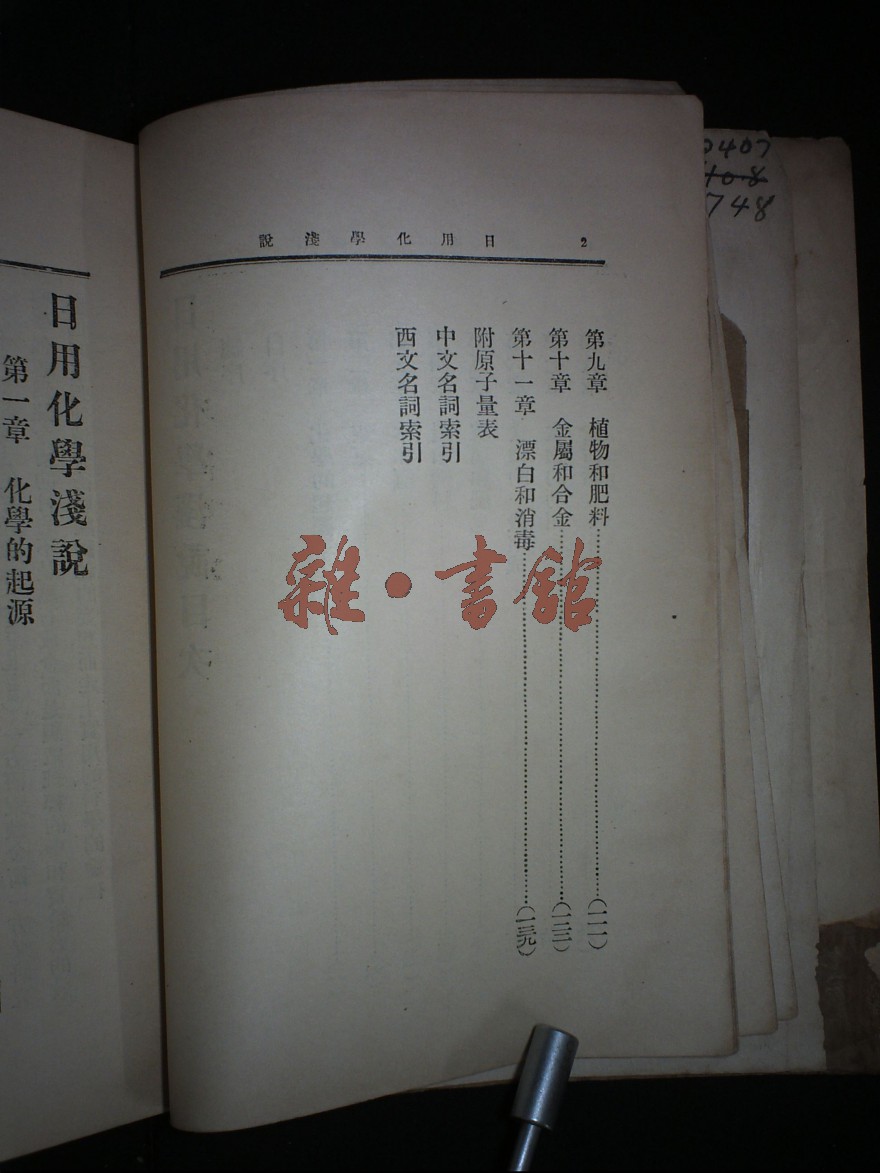 2 日用化學淺說
第九章 植物和肥料……(一一一)
第十章 金屬和合金……(一二三)
第十一章 漂白和消毒……(一三九)
附原子量表
中文名詞索引
西文名詞索引
日用化學淺說
第一章 化學的起源
雜·書館
0407
408
748